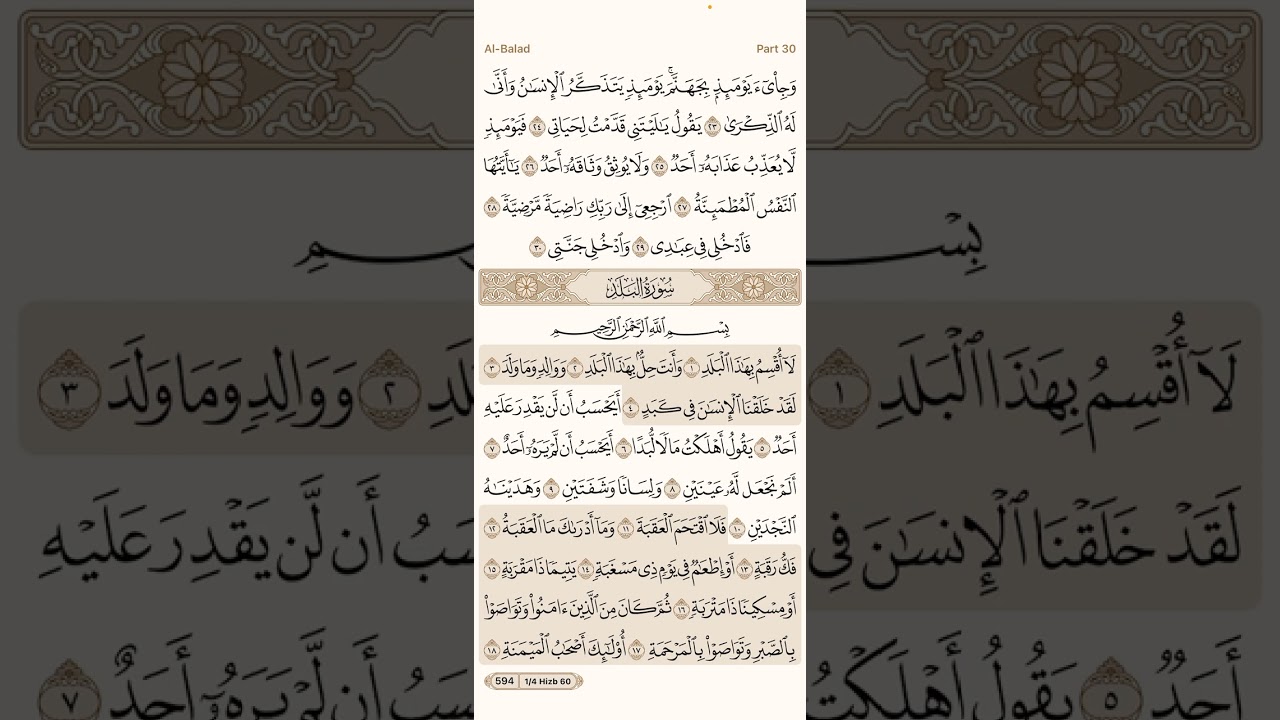 Al-Balad Part 30
وَجِا۟ىٓءَ يَوْمَئِذٍۭ بِجَهَنَّمَ ۚ يَوْمَئِذٍ يَتَذَكَّرُ ٱلْإِنسَـٰنُ وَأَنَّىٰ
لَهُ ٱلذِّكْرَىٰ ٢٣ يَقُولُ يَـٰلَيْتَنِى قَدَّمْتُ لِحَيَاتِى ٢٤ فَيَوْمَئِذٍ
لَّا يُعَذِّبُ عَذَابَهُۥٓ أَحَدٌ ٢٥ وَلَا يُوثِقُ وَثَاقَهُۥٓ أَحَدٌ ٢٦ يَـٰٓأَيَّتُهَا
ٱلنَّفْسُ ٱلْمُطْمَئِنَّةُ ٢٧ ٱرْجِعِىٓ إِلَىٰ رَبِّكِ رَاضِيَةً مَّرْضِيَّةً ٢٨
فَٱدْخُلِى فِى عِبَـٰدِى ٢٩ وَٱدْخُلِى جَنَّتِى ٣٠
سُورَةُ الْبَلَدِ
بِسْمِ ٱللَّهِ ٱلرَّحْمَـٰنِ ٱلرَّحِيمِ
لَآ أُقْسِمُ بِهَـٰذَا ٱلْبَلَدِ ١ وَأَنتَ حِلٌّۢ بِهَـٰذَا ٱلْبَلَدِ ٢ وَوَالِدٍ وَمَا وَلَدَ ٣
لَقَدْ خَلَقْنَا ٱلْإِنسَـٰنَ فِى كَبَدٍ ٤ أَيَحْسَبُ أَن لَّن يَقْدِرَ عَلَيْهِ
أَحَدٌ ٥ يَقُولُ أَهْلَكْتُ مَالًا لُّبَدًا ٦ أَيَحْسَبُ أَن لَّمْ يَرَهُۥٓ أَحَدٌ ٧
أَلَمْ نَجْعَل لَّهُۥ عَيْنَيْنِ ٨ وَلِسَانًا وَشَفَتَيْنِ ٩ وَهَدَيْنَـٰهُ
ٱلنَّجْدَيْنِ ١٠ فَلَا ٱقْتَحَمَ ٱلْعَقَبَةَ ١١ وَمَآ أَدْرَىٰكَ مَا ٱلْعَقَبَةُ ١٢
فَكُّ رَقَبَةٍ ١٣ أَوْ إِطْعَـٰمٌ فِى يَوْمٍ ذِى مَسْغَبَةٍ ١٤ يَتِيمًا ذَا مَقْرَبَةٍ ١٥
أَوْ مِسْكِينًا ذَا مَتْرَبَةٍ ١٦ ثُمَّ كَانَ مِنَ ٱلَّذِينَ ءَامَنُوا۟ وَتَوَاصَوْا۟
بِٱلصَّبْرِ وَتَوَاصَوْا۟ بِٱلْمَرْحَمَةِ ١٧ أُو۟لَـٰٓئِكَ أَصْحَـٰبُ ٱلْمَيْمَنَةِ ١٨
594 1/4 Hizb 60